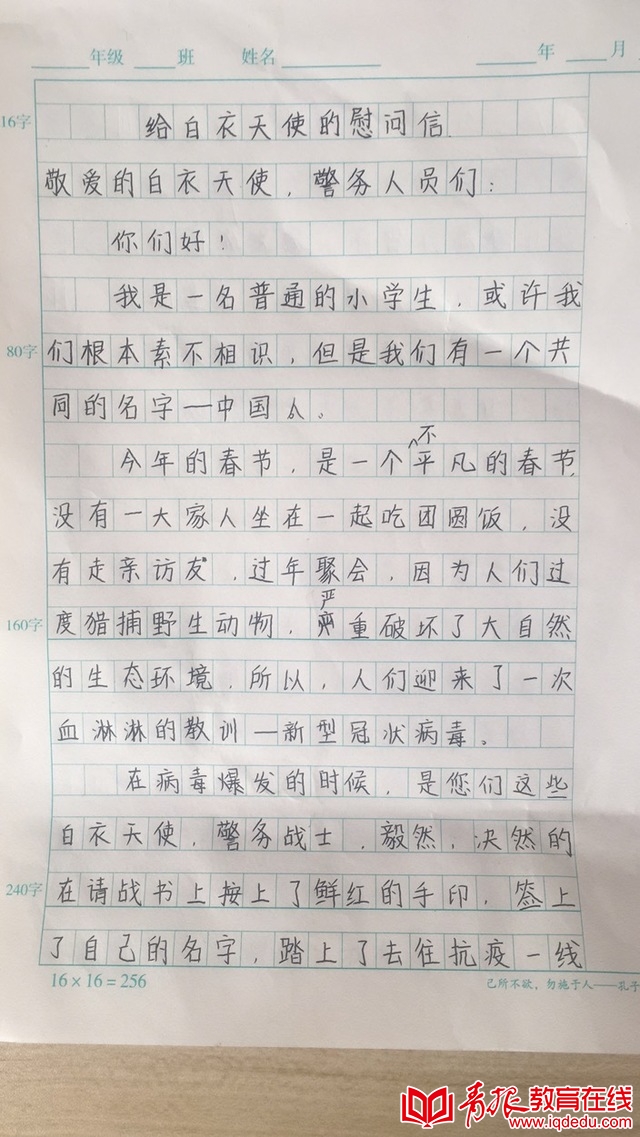 年级 班 姓名 年 月
16字
给白衣天使的慰问信
敬爱的白衣天使，警务人员们：
你们好！
我是一名普通的小学生，或许我
80字
们根本素不相识，但是我们有一个共
同的名字一中国人。
今年的春节，是一个不平凡的春节，
没有一大家人坐在一起吃团圆饭，没
有走亲访友，过年聚会，因为人们过
160字
度猎捕野生动物，严重破坏了大自然
的生态环境，所以，人们迎来了一次
血淋淋的教训一新型冠状病毒。
在病毒爆发的时候，是您们这些
白衣天使，警务战士，毅然，决然的
240字
在请战书上按上了鲜红的手印，签上
了自己的名字，踏上了去往抗疫一线
16×16=256
己所不欲，勿施于人——孔子
青报教育在线
www.iqdedu.com